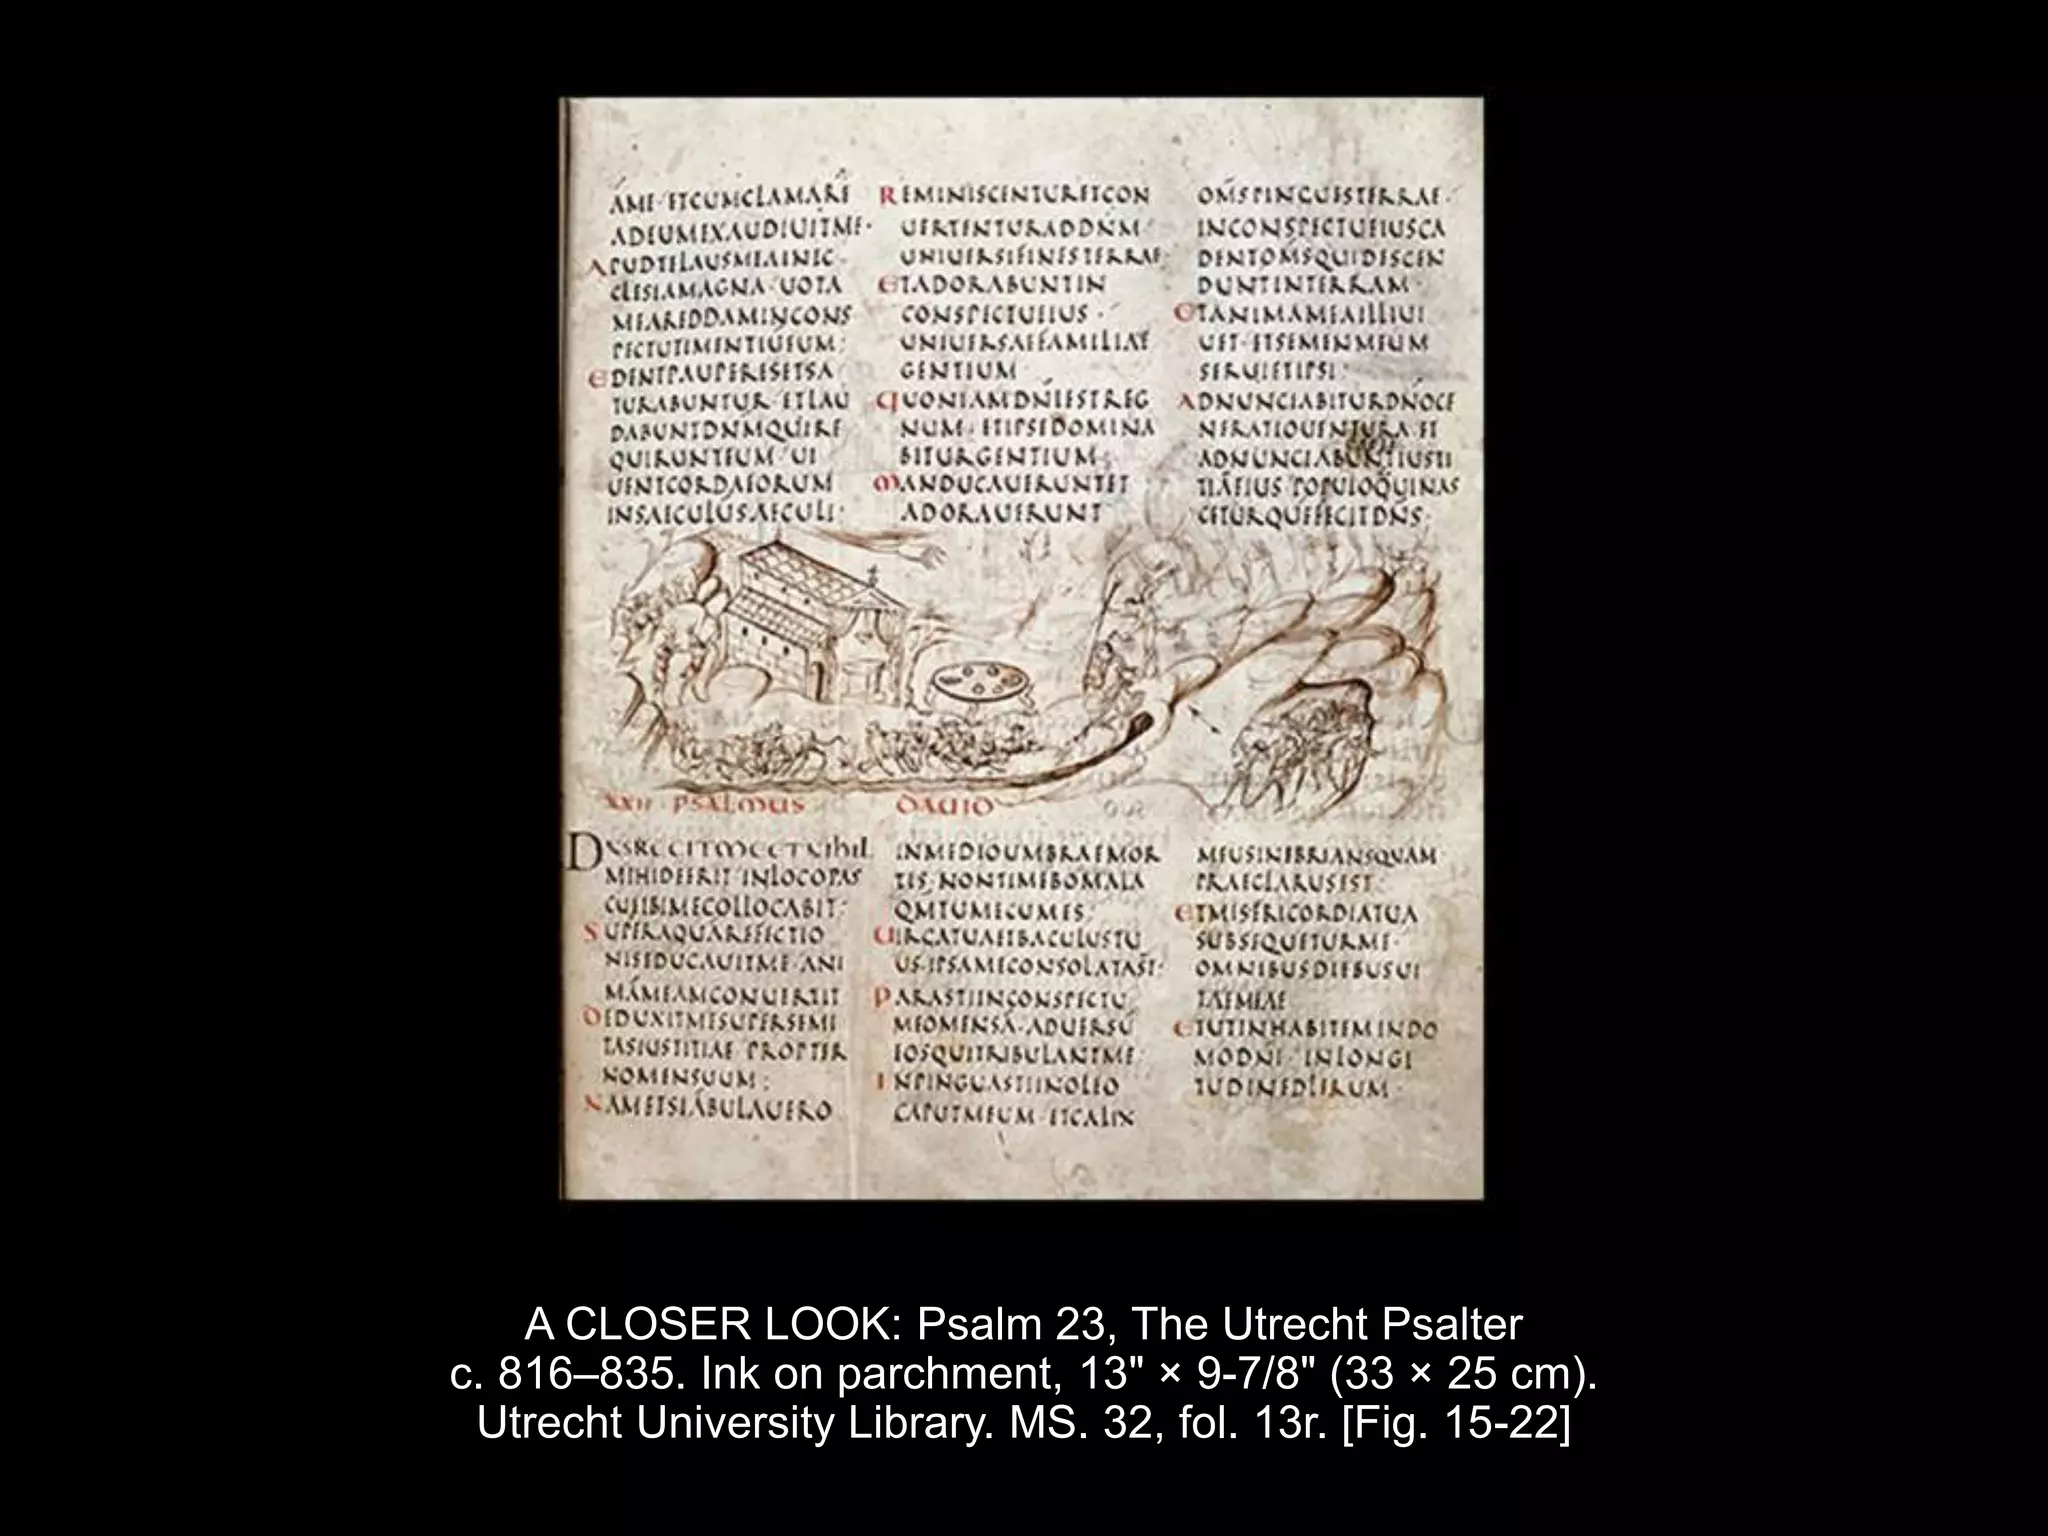 ÁME·ETCUMCLAMARĒ
ADEUMEXAUDIUITME·
APUDTELAUSMEAINEC
CLESIAMAGNA·UOTA
MEAREDDAMINCONS
PECTUTIMENTIUEUM:
EDENTPAUPERESETSA
TURABUNTUR·ETLAU
DABUNTDNMQUIRE
QUIRUNTEUM·UI
UENTCORDAEORUM
INSAECULUSAECULI:
REMINISCENTURETCON
UERTENTURADDNM·
UNIUERSIFINESTERRAE:
ETADORABUNTIN
CONSPECTUEIUS·
UNIUERSAEFAMILIAE
GENTIUM
QUONIAMDNIESTREG
NUM·ETIPSEDOMINA
BITURGENTIUM:
MANDUCAUERUNTET
ADORAUERUNT
OMSPINGUESTERRAE·
INCONSPECTUEIUSCA
DENTOMSQUIDESCEN
DUNTINTERRAM·
ETANIMAMEAILLIUI
UET·ETSEMENMEUM
SERUIETIPSI:
ADNUNCIABITURDNOGE
NERATIOUENTURA·ET
ADNUNCIABUNTIUSTI
TIAEIUS·POPULOQUINAS
CETURQUEFECITDNS·
XXII·PSALMUS DAUID
DNSREGITMEETNIHIL
MIHIDEERIT·INLOCOPAS
CUEIBIMECOLLOCABIT:
SUPERAQUAREFECTIO
NISEDUCAUITME·ANI
MAMEAMCONUERTIT
DEDUXITMESUPERSEMI
TASIUSTITIAE·PROPTER
NOMENSUUM:
NAMETSIABULAUERO
INMEDIOUMBRAEMOR
TIS·NONTIMEBOMALA
QMTUMECUMES:
UIRGATUAETBACULUSTU
US·IPSAMECONSOLATAST:
PARASTIINCONSPECTU
MEOMENSA·ADUERSU
EOSQUITRIBULANTME:
INPINGUASTIINOLEO
CAPUTMEUM·ETCALIX
MEUSINEBRIANSQUAM
PRAECLARUSEST:
ETMISERICORDIATUA
SUBSEQUETURME·
OMNIBUSDIEBUSUI
TAEMEAE
ETUTINHABITEMINDO
MODNI·INLONGI
TUDINEDIERUM·
A CLOSER LOOK: Psalm 23, The Utrecht Psalter
c. 816–835. Ink on parchment, 13" × 9-7/8" (33 × 25 cm).
Utrecht University Library. MS. 32, fol. 13r. [Fig. 15-22]